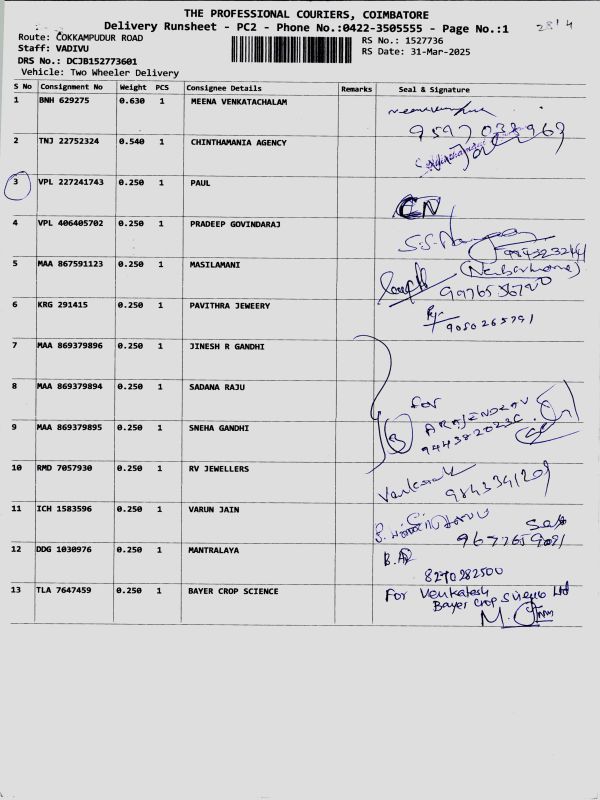 THE PROFESSIONAL COURIERS, COIMBATORE
Delivery Runsheet - PC2 - Phone No.:0422-3505555 - Page No.:1
Route: COKKAMPUDUR ROAD
RS No.: 1527736
Staff: VADIVU
RS Date: 31-Mar-2025
DRS No.: DCJB152773601
Vehicle: Two Wheeler Delivery
S No Consignment No Weight PCS Consignee Details Remarks Seal & Signature
1 BNH 629275 0.630 1 MEENA VENKATACHALAM
2 TNJ 22752324 0.540 1 CHINTHAMANIA AGENCY
3 VPL 227241743 0.250 1 PAUL
CN
4 VPL 406405702 0.250 1 PRADEEP GOVINDARAJ
5 MAA 867591123 0.250 1 MASILAMANI
6 KRG 291415 0.250 1 PAVITHRA JEWEERY
9050265791
7 MAA 869379896 0.250 1 JINESH R GANDHI
8 MAA 869379894 0.250 1 SADANA RAJU
for
9 MAA 869379895 0.250 1 SNEHA GANDHI
3
10 RMD 7057930 0.250 1 RV JEWELLERS
11 ICH 1583596 0.250 1 VARUN JAIN
12 DDG 1030976 0.250 1 MANTRALAYA
8270282500
13 TLA 7647459 0.250 1 BAYER CROP SCIENCE
For Venkatesh
Bayer Crop Science Ltd